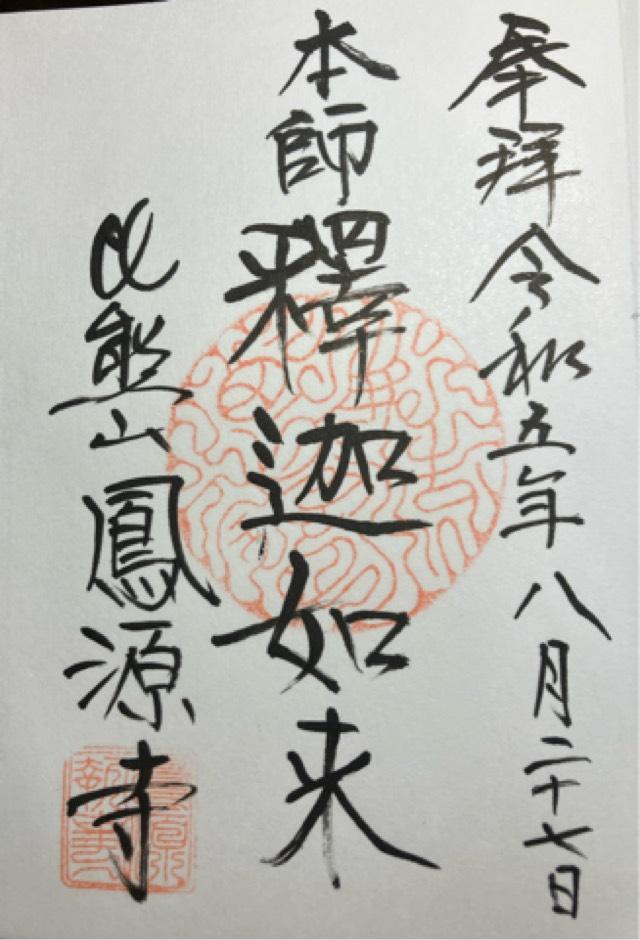 奉拝 令和五年八月二十七日
本師釋迦如来
熊山鳳源寺